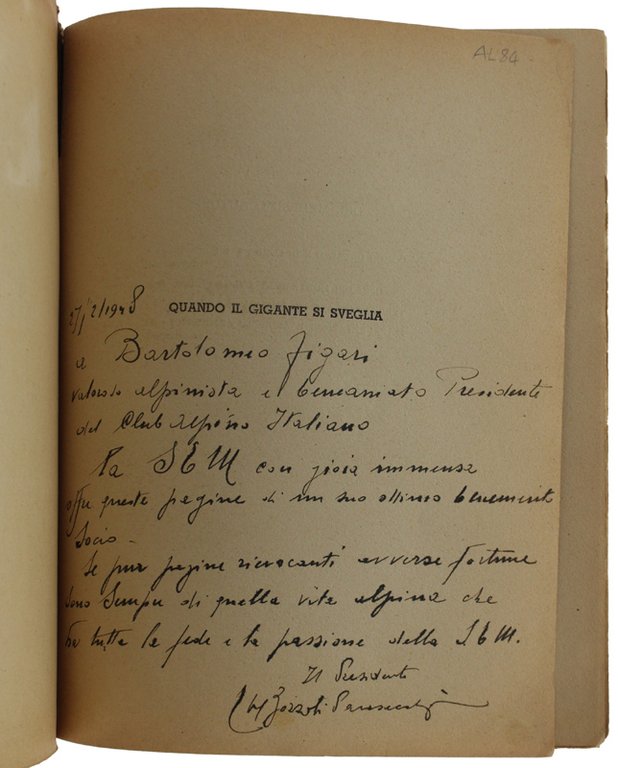 AL 84
27/2/1948
QUANDO IL GIGANTE SI SVEGLIA
a Bartolomeo Figari
valoroso alpinista e beneamato Presidente
del Club Alpino Italiano
la SEM con gioia immensa
offre queste pagine di un suo ottimo benemerito
Socio -
Se pur pagine rievocanti avverse fortune
sono sempre di quella vita alpina che
ha tutta la fede e la passione della SEM.
Il Presidente